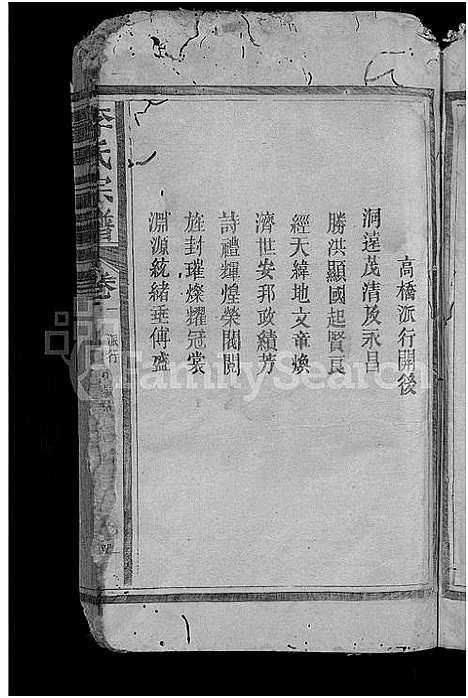 高橋派行開後
洞達茂清及永昌
勝洪顯國起賢良
經天緯地文章煥
濟世安邦政績芳
詩禮輝煌榮閥閱
旌封璀燦耀冠裳
淵源統緒垂傳盛
李氏宗譜
卷
派行
FamilySearch